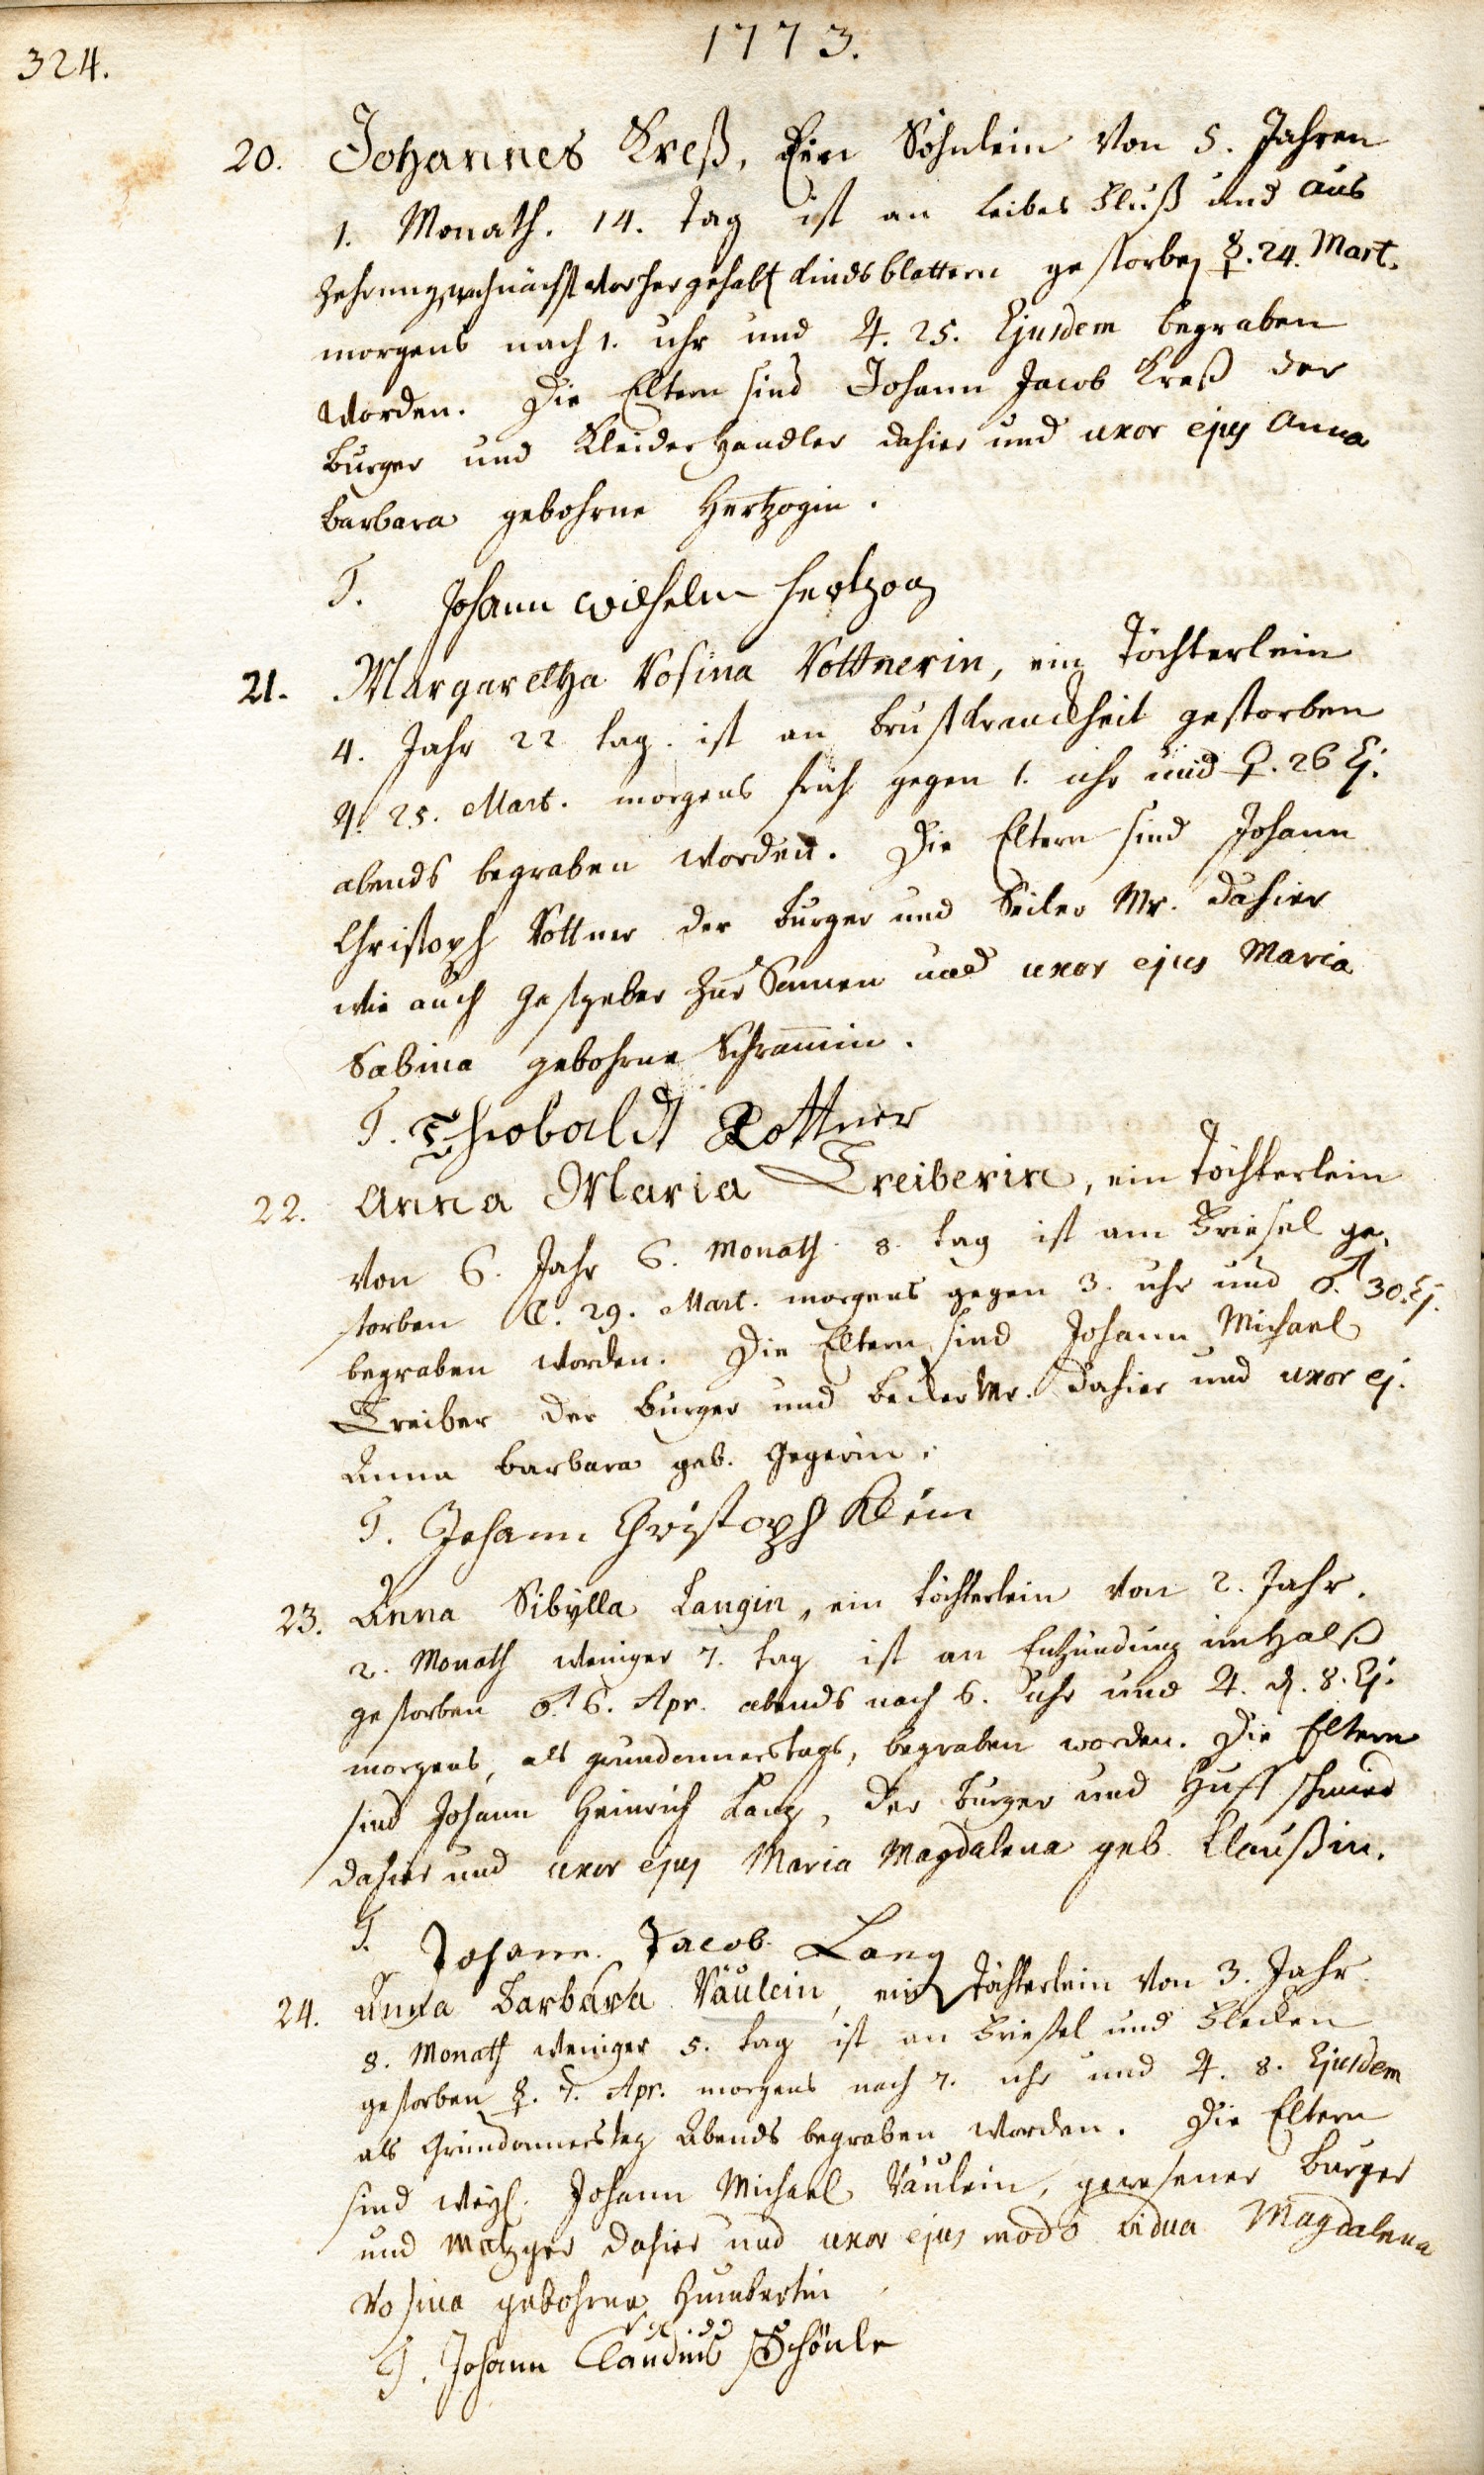 324.
1773.
20. Johannes Kreß, Ein Söhnlein von 5. Jahren
1. Monath. 14. tag ist an Leibes Fluß und aus
zehrung, nach nächst vorher gehabt Kindsblattern gestorben ☿. 24. Mart.
morgens nach 1. uhr und ♃. 25. Ejusdem begraben
worden. Die Eltern sind Johann Jacob Kreß der
burger und Kleiderhandler dahier und uxor ejus Anna
barbara gebohrne Hertzogin.
T. Johann Wilhelm Hertzog
21. Margaretha Rosina Rottnerin, ein Töchterlein
4. Jahr 22 tag. ist an brustkranckheit gestorben
♃. 25. Mart. morgens früh gegen 1. uhr und ♀. 26 Ej.
abends begraben worden. Die Eltern sind Johann
Christoph Rottner der burger und Seiler Mr. dahier
wie auch Gastgeber zur Sonnen und uxor ejus Maria
Sabina gebohrne Schram̄in.
T. Theobaldt Rottner
22. Anna Maria Treiberin, ein töchterlein
von 6. Jahr 6. Monath 8. tag ist am Friesel ge-
storben ☾. 29. Mart. morgens gegen 3. uhr und ♂. 30. Ej.
begraben worden. Die Eltern sind Johann Michael
Treiber der burger und becker Mr. dahier und uxor ej.
Anna barbara geb. Gegerin.
T. Johann Christoph Klein
23. Anna Sibÿlla Langin, ein töchterlein von 2. Jahr.
2. Monath weniger 7. tag ist an Entzündung im Halß
gestorben ♂. 6. Apr. abends nach 6. uhr und ♃. d. 8. Ej.
morgens, als grundonnerstags, begraben worden. Die Eltern
sind Johann Heinrich Lang, der burger und Huffschmied
dahier und uxor ejus Maria Magdalena geb. Claußin.
T. Johann Jacob Lang
24. Anna Barbara Väulein, ein Töchterlein von 3. Jahr
8. Monath weniger 5. tag ist an Friesel und Flecken
gestorben ☿. 7. Apr. morgens nach 7. uhr und ♃. 8. Ejusdem
als Grundonnerstag Abends begraben worden. Die Eltern
sind weyl. Johann Michael Väulein, gewesener burger
und Metzger dahier und uxor ejus modo vidua Magdalena
Rosina gebohrne Humbertin
T. Johann Claudius Schönle